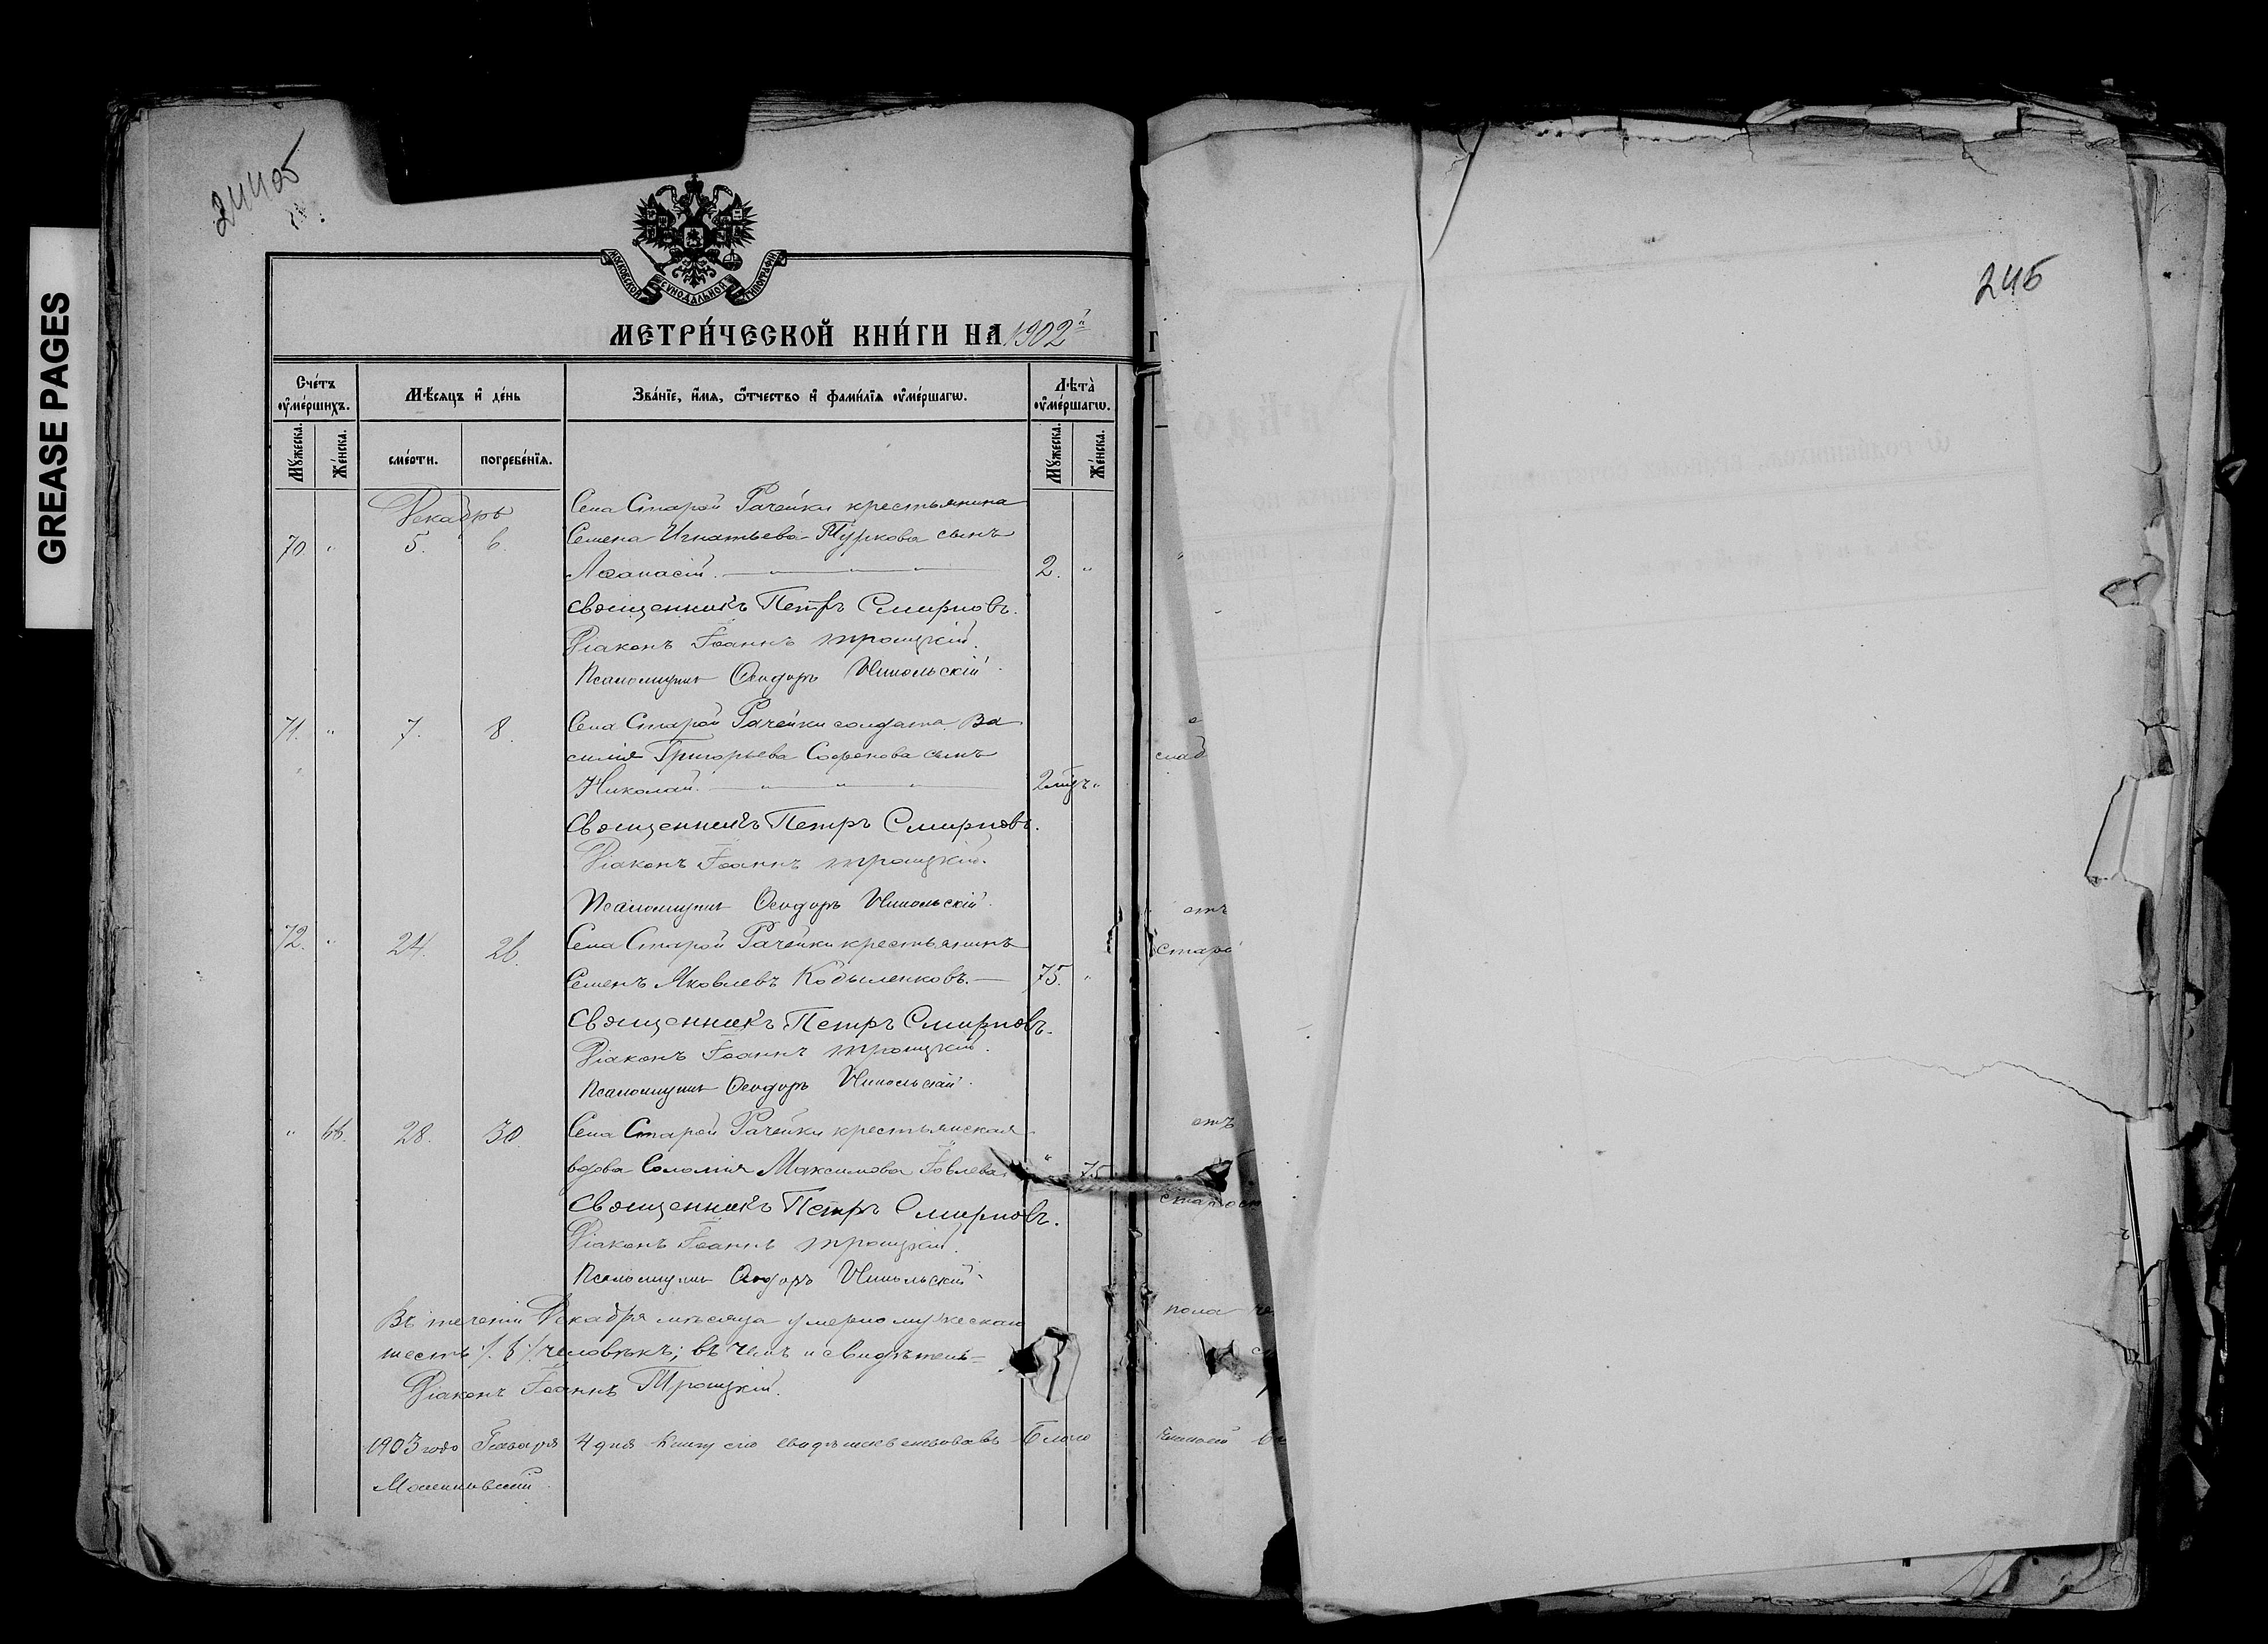 GREASE PAGES
245
МОСКОВСКОЙ СѴНОДАЛЬНОЙ ТИПОГРАФІИ
МЕТРИ́ЧЕСКОЙ КНИ́ГИ НА 1902й
Сче́тъ ᲂу҆ме́ршихъ.
Мѣ́сяцъ и҆ де́нь
Зва́нїе, и҆́мя, ѻ҆́тчество и҆ фами́лїя ᲂу҆ме́ршагѡ.
Лѣта̀ ᲂу҆ме́ршагѡ.
Мꙋ́жеска.
Же́нска.
сме́рти.
погребе́нїя.
Мꙋ́жеска.
Же́нска.
Декабрь
Села Старой Рачейки крестьянина
70 " 5. 6. Семена Игнатьева Туркова сынъ
Аѳанасій. — " — " — " — 2. "
Священникъ Петръ Смирновъ.
Діаконъ Іоаннъ Троицкій.
Псаломщикъ Ѳеодоръ Никольскій.
71. " 7. 8. Села Старой Рачейки солдата Ва
силія Григорьева Софонова сынъ
Николай. — " — " — " — 2 мѣ "
Священникъ Петръ Смирновъ.
Діаконъ Іоаннъ Троицкій.
Псаломщикъ Ѳеодоръ Никольскій.
72. " 24. 26. Села Старой Рачейки крестьянинъ
Семенъ Яковлевъ Кобыленковъ. — 75. "
Священникъ Петръ Смирновъ.
Діаконъ Іоаннъ Троицкій.
Псаломщикъ Ѳеодоръ Никольскій.
" 66. 28. 30. Села Старой Рачейки крестьянская
вдова Соломія Максимова Іовлева " 75
Священникъ Петръ Смирновъ.
Діаконъ Іоаннъ Троицкій.
Псаломщикъ Ѳеодоръ Никольскій.
Въ теченіи Декабря мѣсяца умерло мужескаго
шесть /. 6 /. человѣкъ; въ чемъ и свидѣтель=
Діаконъ Іоаннъ Троицкій.
1903 года Января 4 дня книгу сію свидѣтельствовалъ Благо
стар
пола